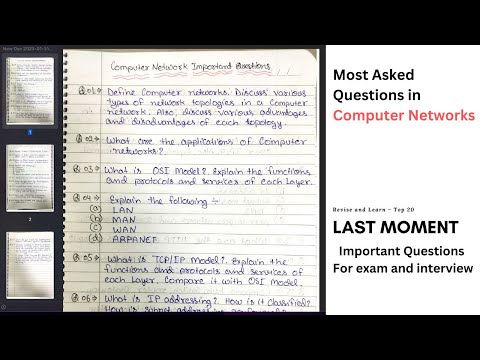 Computer Network Important Questions
Q 01→ Define Computer networks. Discuss various
types of network topologies in a Computer
network. Also, discuss various advantages
and disadvantages of each topology.
Q 02→ What are the applications of Computer
networks?
Q 03→ What is OSI Model? Explain the functions
and protocols and services of each Layer.
Q 04→ Explain the following :-
(a) LAN
(b) MAN
(c) WAN
(d) ARPANET
Q 05→ What is TCP/IP Model? Explain the
functions and protocols and services of
each Layer. Compare it with OSI Model.
Q 06→ What is IP addressing? How is it classified?
How is subnet addressing
Most Asked
Questions in
Computer Networks
Revise and Learn - Top 20
LAST MOMENT
Important Questions
For exam and interview